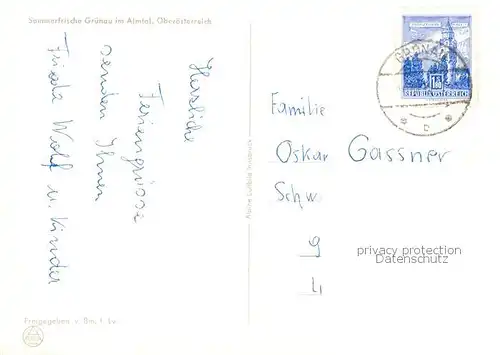 Sommerfrische Grünau im Almtal, Oberösterreich
Herzliche
Feriengrüsse
senden Ihnen
Frieda Wolf u. Kinder
Alpine Luftbild Innsbruck
Freigegeben v. Bm. f. Lv.
GRÜNAU
REPUBLIK ÖSTERREICH
Familie
Oskar Gassner
Schw.
9
privacy protection
Datenschutz